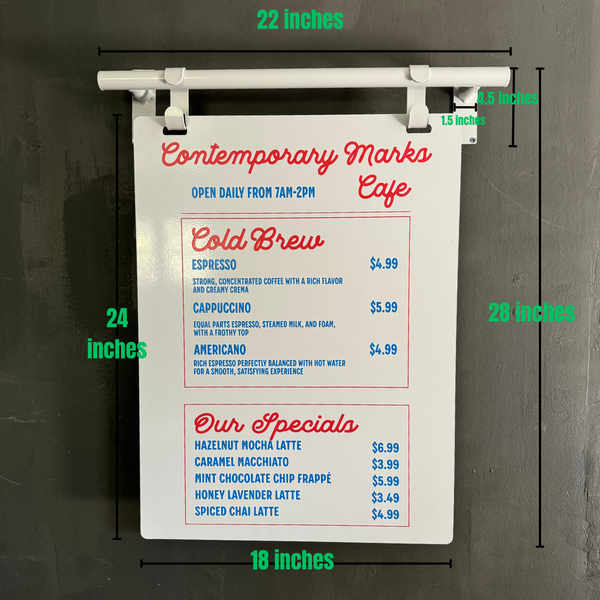 22 inches
4.5 inches
1.5 inches
Contemporary Marks
Cafe
OPEN DAILY FROM 7AM-2PM
Cold Brew
ESPRESSO $4.99
STRONG, CONCENTRATED COFFEE WITH A RICH FLAVOR
AND CREAMY CREMA
CAPPUCCINO $5.99
EQUAL PARTS ESPRESSO, STEAMED MILK, AND FOAM,
WITH A FROTHY TOP
AMERICANO $4.99
RICH ESPRESSO PERFECTLY BALANCED WITH HOT WATER
FOR A SMOOTH, SATISFYING EXPERIENCE
24
inches
28 inches
Our Specials
HAZELNUT MOCHA LATTE $6.99
CARAMEL MACCHIATO $3.99
MINT CHOCOLATE CHIP FRAPPÉ $5.99
HONEY LAVENDER LATTE $3.49
SPICED CHAI LATTE $4.99
18 inches